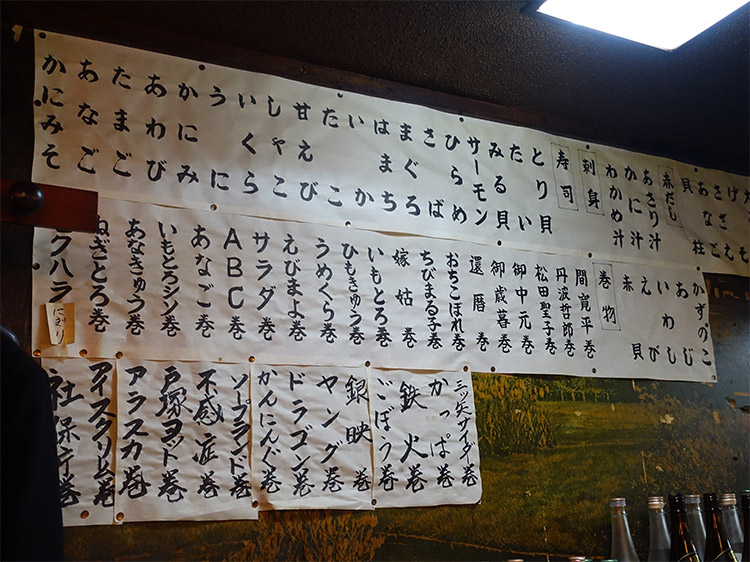 げそ
さざえ
あなご
貝柱
赤だし
あさり汁
かに汁
わかめ汁
刺身
寿司
とり貝
たい
みる貝
サーモン
ひらめ
さば
まぐろ
はまち
いか
たこ
甘えび
しゃこ
いくら
うに
かにみ
あわび
たまご
あなご
かにみそ
かずのこ
あじ
いわし
えび
赤貝
巻物
間寛平巻
丹波哲郎巻
松田聖子巻
御中元巻
御歳暮巻
還暦巻
おちこぼれ巻
ちびまる子巻
嫁姑巻
いもとろ巻
ひもきゅう巻
うめくら巻
えびまよ巻
サラダ巻
ABC巻
あなご巻
いもとろシン巻
あなきゅう巻
ねぎとろ巻
クハラ
にぎり
三ツ矢サイダー巻
かっぱ巻
鉄火巻
ごぼう巻
銀映巻
ヤング巻
ドラゴン巻
かんにんぐ巻
ソープランド巻
不感症巻
戸塚ヨット巻
アラスカ巻
アイスクリーム巻
社保庁巻